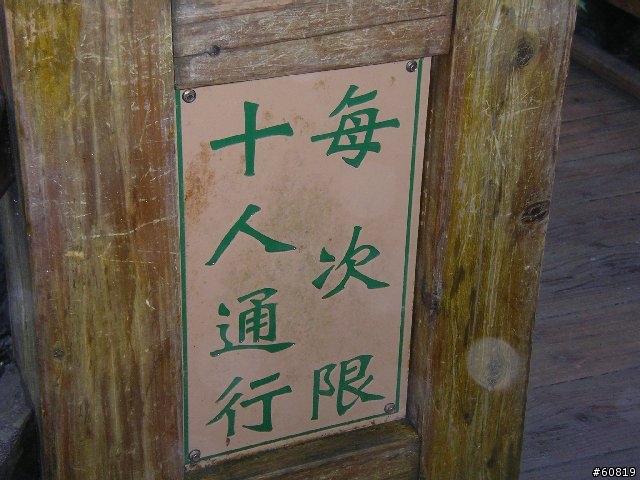 每次限
十人通行
#60819